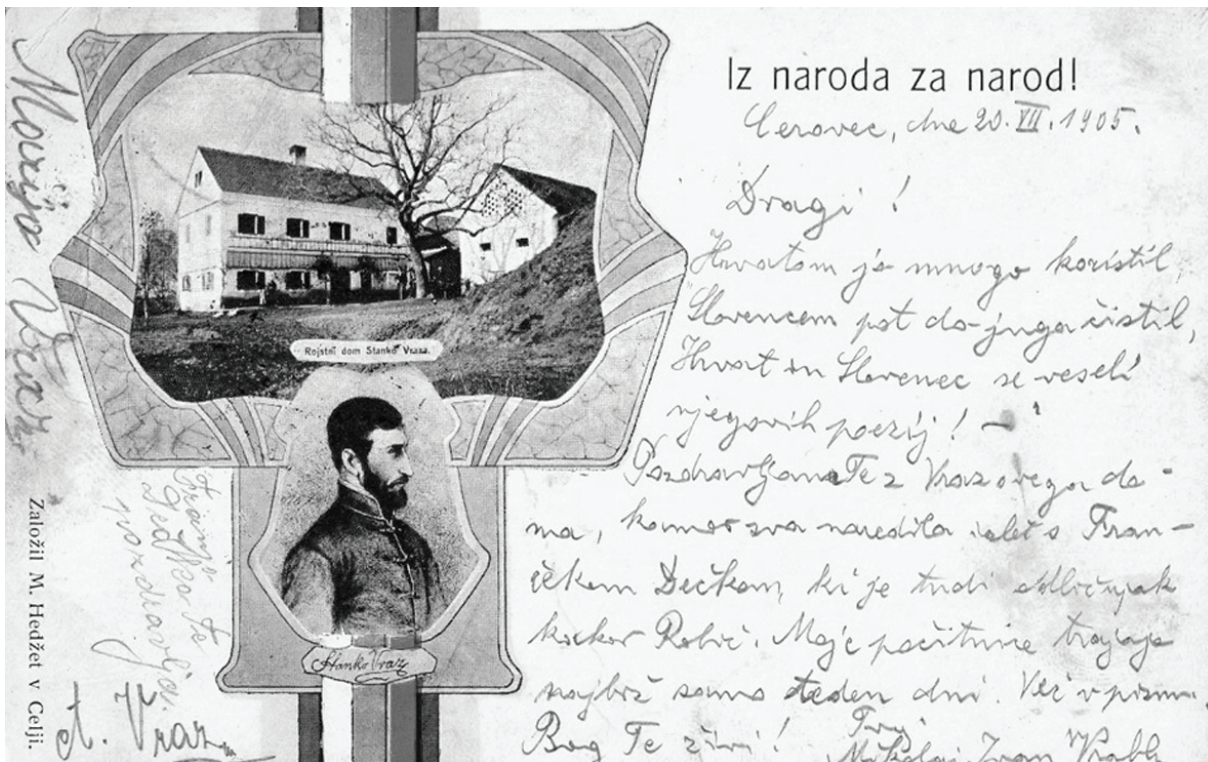 Iz naroda za narod!
Cerovec, dne 20. VII. 1905.
Dragi!
Hrvatom je mnogo koristil,
Slovencem pot do juga čistil,
Hrvat in Slovenec se veseli
njegovih poezij! —
Pozdravljama Te z Vrazovega do-
ma, kamor sva naredila izlet s Fran-
čekom Dečkom, ki je tudi odličnjak
kakor Robič. Moje počitnice trajajo
najbrž samo teden dni. Več v pismu.
Bog Te živi! Tvoj
Mikolaj Ivan Vrabl
Rojstni dom Stanko Vraza.
Stanko Vraz
Marija Vraz
Te
pozdravlja.
A. Vraz
Založil M. Hedžet v Celji.